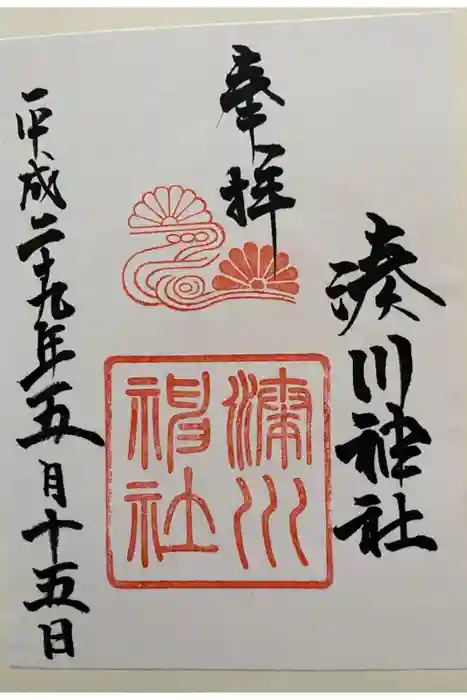 奉拝
湊川神社
湊川
神社
平成二十九年五月十五日